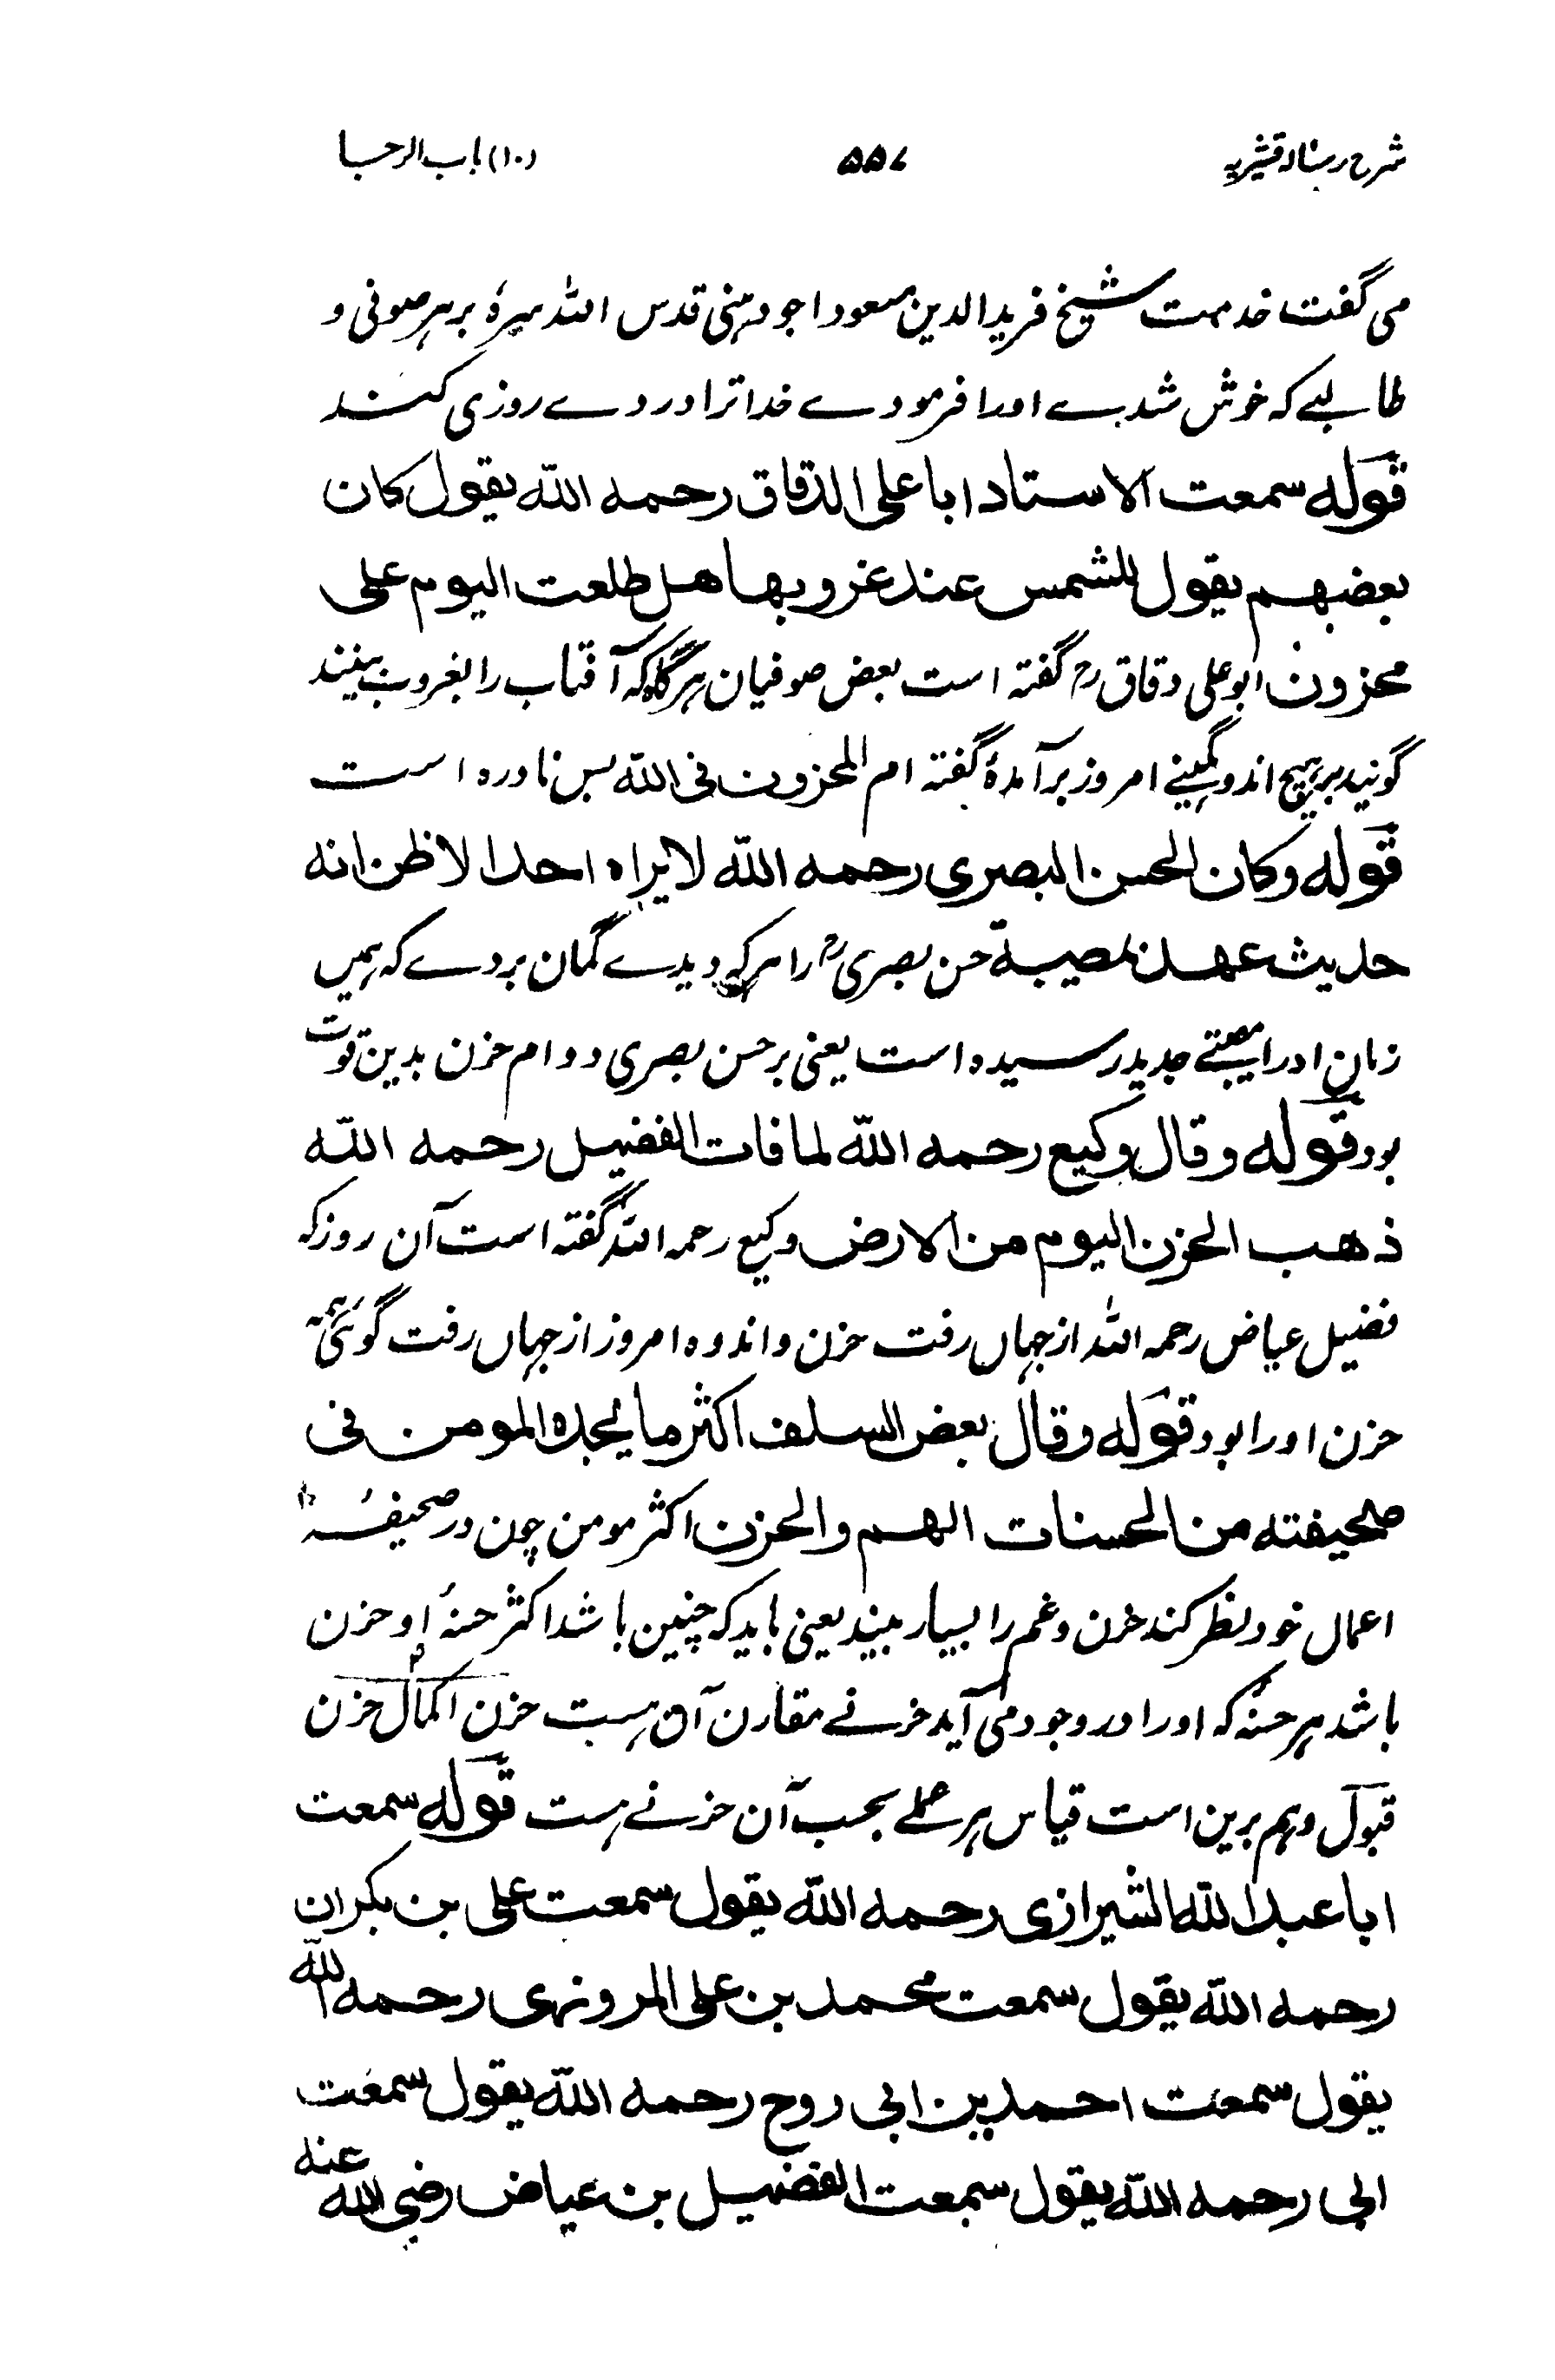 شرح رسالہ قشیریہ ۵۵۷ (۱۰) باب الرجا
می گفت خدمت شیخ فرید الدین مسعود اجودہنی قدس اللہ سرہٗ بر ہر صوفی و
طالبے کہ خوش شدے اورا فرمودے خدا ترا دردے روزی کند
قوله سمعت الاستاد ابا علی الدقاق رحمه الله یقول کان
بعضهم یقول للشمس عند غروبها هل طلعت الیوم علی
محزون ابو علی دقاق رح گفتہ است بعض صوفیان ہر گاہ کہ آفتاب را بغروب بینند
گویند بر ہیچ اندوہگینے امروز برآمدۂ گفتہ ام المحزون فی الله بس نادرہ است
قوله وکان الحسن البصری رحمه الله لا یراه احد الا ظن انه
حدیث عهد بمصیبة حسن بصری رح را ہر کہ دیدے گمان بردے کہ ہمیں
زمان اورا مصیبتے جدید رسیدہ است یعنی بر حسن بصری دوام حزن بدین قوت
بود قوله وقال وکیع رحمه الله لما فات الفضیل رحمه الله
ذهب الحزن الیوم من الارض وکیع رحمہ اللہ گفتہ است آن روز کہ
فضیل عیاض رحمہ اللہ از جہاں رفت حزن و اندوہ امروز از جہاں رفت گوئی ہمہ
حزن اورا بود قوله وقال بعض السلف اکثر ما یجده المومن فی
صحیفته من الحسنات الهم والحزن اکثر مومن چون در صحیفۂ
اعمال خود نظر کند حزن و غم را بسیار بیند یعنی باید کہ چنین باشد اکثر حسنۂ او حزن
باشد ہر حسنہ کہ اورا در وجود می آید حزنے مقارن آن ہست حزن اکمال حزن
قبول و ہم برین است قیاس ہر عملے بحسب آن حزنے ہست قوله سمعت
ابا عبد الله الشیرازی رحمه الله یقول سمعت علی بن بکران
رحمه الله یقول سمعت محمد بن علی المرونهی رحمه الله
یقول سمعت احمد بن ابی روح رحمه الله یقول سمعت
ابی رحمه الله یقول سمعت الفضیل بن عیاض رضی الله عنه